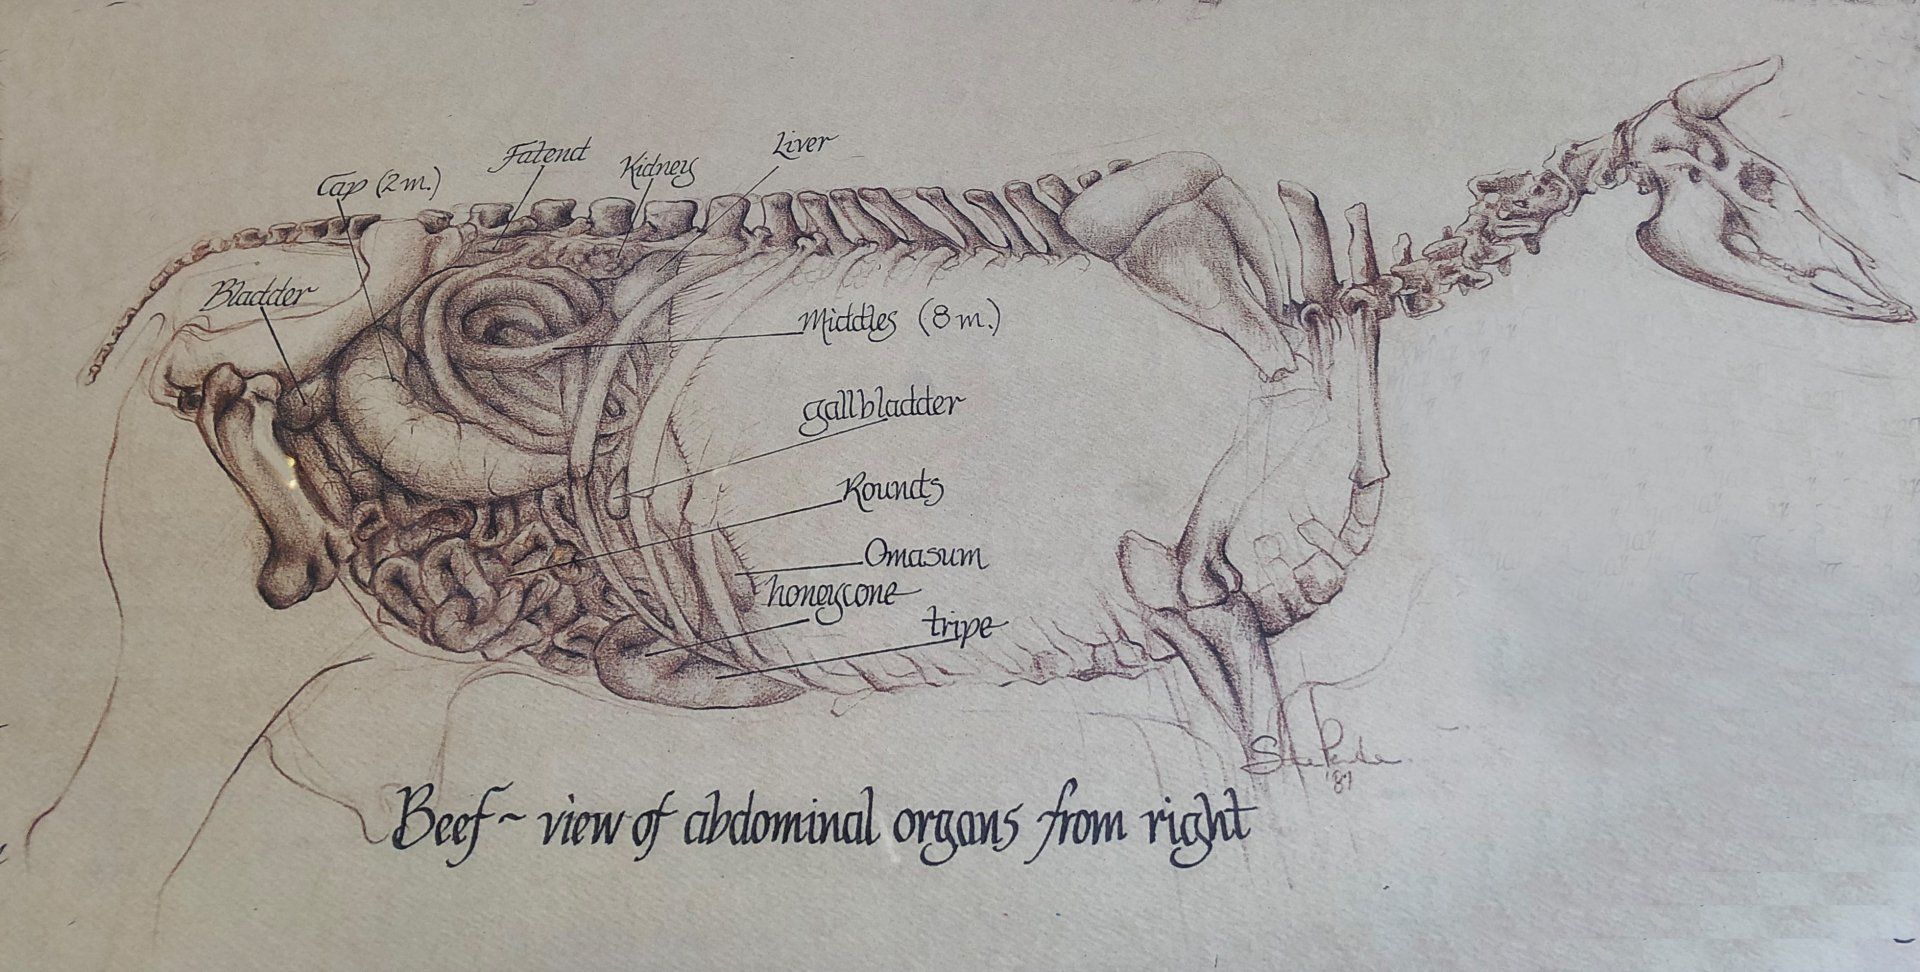 Liver
Fatend
Kidney
Cap (2 m.)
Bladder
Middles (8 m.)
gallbladder
Rounds
Omasum
honeycone
tripe
'87
Beef ~ view of abdominal organs from right